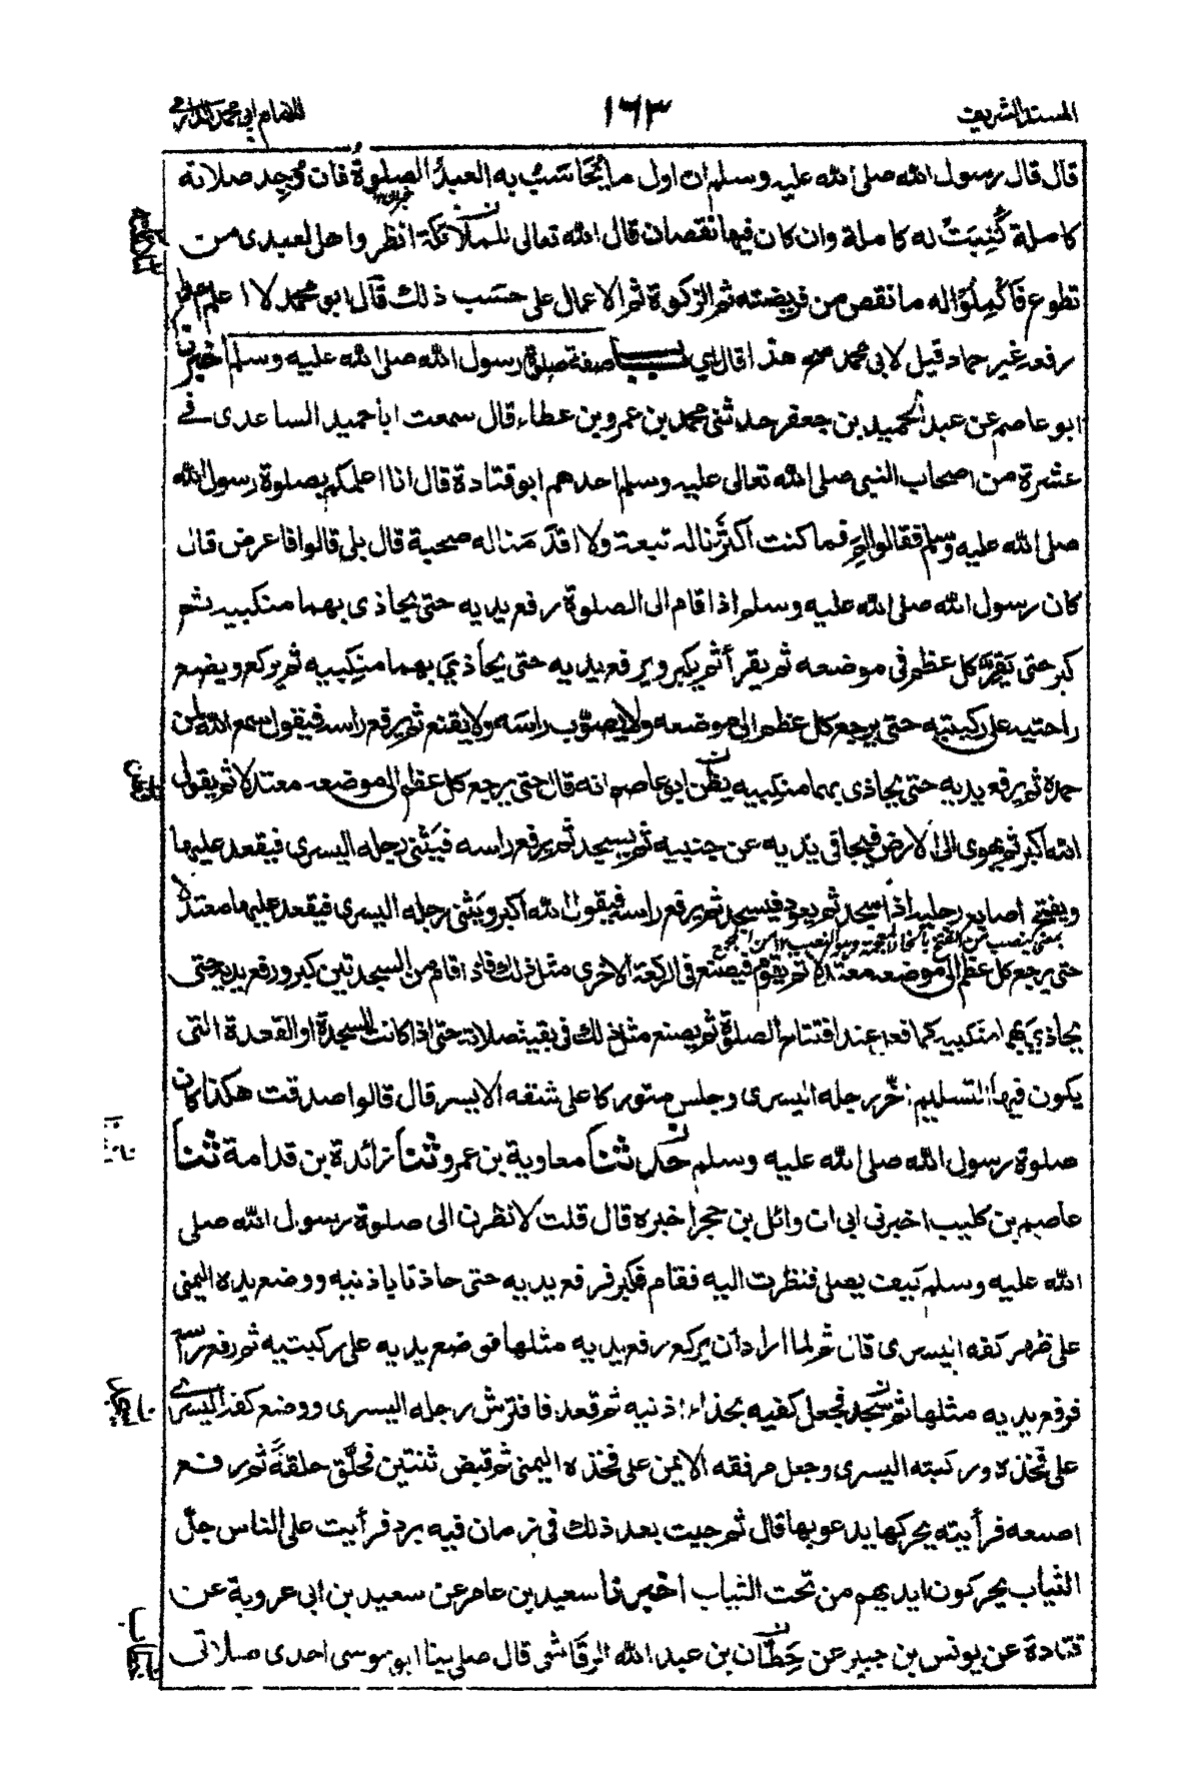 المسند الشريف
١٦٣
للامام ابى محمد الدارمى
قال قال رسول الله صلى الله عليه وسلم ان اول ما يُحَاسَبُ به العبدُ الصلوةُ فان وُجِد صلاته
كاملة كُتِبَتْ له كاملة وان كان فيها نقصان قال الله تعالى للملائكة انظروا هل لعبدى من
تطوع فَاَكْمِلُوْا له ما نقص من فريضته ثم الزكوة ثم الاعمال على حَسَب ذلك قال ابو محمد لا اعلم احدا
رفعه غير حماد قيل لابى محمد صح هذا قال اي باب صفة صلوة رسول الله صلى الله عليه وسلم اخبرنا
ابو عاصم عن عبد الحميد بن جعفر حدثنى محمد بن عمرو بن عطاء قال سمعت ابا حميد الساعدى فى
عشرة من اصحاب النبى صلى الله تعالى عليه وسلم احدهم ابو قتادة قال انا اعلمكم بصلوة رسول الله
صلى الله عليه وسلم فقالوا لم فما كنت اكثرنا له تبعة ولا اقدمنا له صحبة قال بلى قالوا فاعرض قال
كان رسول الله صلى الله عليه وسلم اذا قام الى الصلوة رفع يديه حتى يحاذى بهما منكبيه ثم
كبر حتى يَقِرَّ كل عظم فى موضعه ثم يقرأ ثم يكبر ويرفع يديه حتى يحاذىَ بهما منكبيه ثم يركع ويضع
راحتيه على ركبتيه حتى يرجع كل عظم الى موضعه ولا يصوّب راسَه ولا يقنع ثم يرفع راسه فيقول سمع الله لمن
حمده ثم يرفع يديه حتى يحاذى بهما منكبيه يظن ابو عاصم انه قال حتى يرجع كل عظم الى موضعه معتدلا ثم يقول
الله اكبر ثم يهوى الى الارض فيجافى يديه عن جنبيه ثم يسجد ثم يرفع راسه فيَثنى رجله اليسرى فيقعد عليها
ويفتح اصابع رجليه اذا سجد ثم يعود فيسجد ثم يرفع راسه فيقول الله اكبر ويَثنى رجله اليسرى فيقعد عليها معتدلا
حتى يرجع كل عظم الى موضعه معتدلا ثم يقوم فيصنع فى الركعة الاخرى مثل ذلك فاذا قام من السجدتين كبر ورفع يديه حتى
يحاذىَ بهما منكبيه كما فعل عند افتتاح الصلوة ثم يصنع مثل ذلك فى بقية صلاته حتى اذا كانت السجدة او القعدة التى
يكون فيها التسليم اخّر رجله اليسرى وجلس متوركا على شقه الايسر قال قالوا صدقت هكذا كان
صلوة رسول الله صلى الله عليه وسلم حدثنا معاوية بن عمرو ثنا زائدة بن قدامة ثنا
عاصم بن كليب اخبرنى ابى ان وائل بن حجر اخبره قال قلت لانظرن الى صلوة رسول الله صلى
الله عليه وسلم كيف يصلى فنظرت اليه فقام فكبر فرفع يديه حتى حاذتا باذنيه ووضع يده اليمنى
على ظهر كفه اليسرى قال ثم لما اراد أن يركع رفع يديه مثلها فوضع يديه على ركبتيه ثم رفع رأسه
فرفع يديه مثلها ثم سجد فجعل كفيه بحذاء اذنيه ثم قعد فافترش رجله اليسرى ووضع كفه اليسرى
على فخذه وركبته اليسرى وجعل مرفقه الايمن على فخذه اليمنى ثم قبض ثنتين فحلّق حلقةً ثم رفع
اصبعه فرأيته يحركها يدعو بها قال ثم جيت بعد ذلك فى زمان فيه برد فرأيت على الناس جلّ
الثياب يحركون ايديهم من تحت الثياب اخبرنا سعيد بن عامر عن سعيد بن ابى عروبة عن
قتادة عن يونس بن جبير عن حِطَّان بن عبد الله الرقاشى قال صلى بنا ابو موسى احدى صلاتى